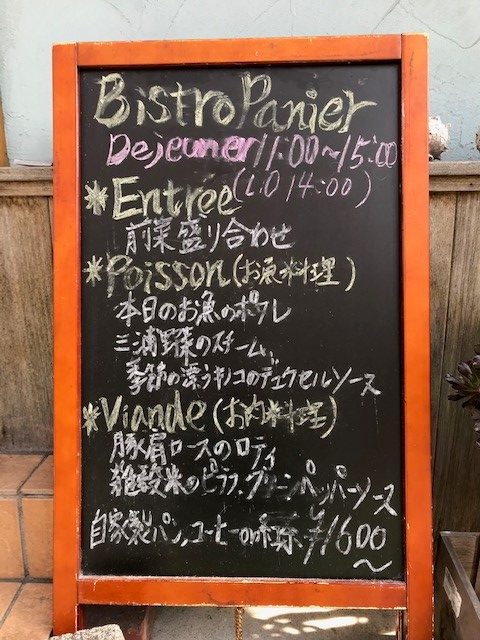 Bistro Panier
Dejeuner 11:00~15:00
(L.O 14:00)
*Entrée
前菜盛り合わせ
*Poisson (お魚料理)
本日のお魚のポワレ
三浦野菜のスチーム、
季節の漂うキノコのデュクセルソース
*Viande (お肉料理)
豚肩ロースのロティ
雑穀米のピラフ、グリーンペッパーソース
自家製パン、コーヒーor紅茶 ¥1600
~